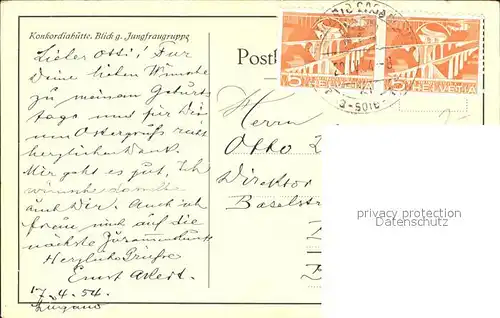 Konkordiahütte. Blick g. Jungfraugruppe
Lieber Otti! Für
Deine lieben Wünsche
zu meinem Geburts
tage und für Dei
nen Ostergruss recht
herzlichen Dank.
Mir geht es gut, Ich
wünsche dasselbe
auch Dir. Auch ich
freue mich auf die
nächste Zusammenkunft
Herzliche Grüsse
Ernst
17.4.54.
Lugano
Postk
HELVETIA
HELVETIA
5
5
Herrn
Otto
Direktor
Baselstr
privacy protection
Datenschutz